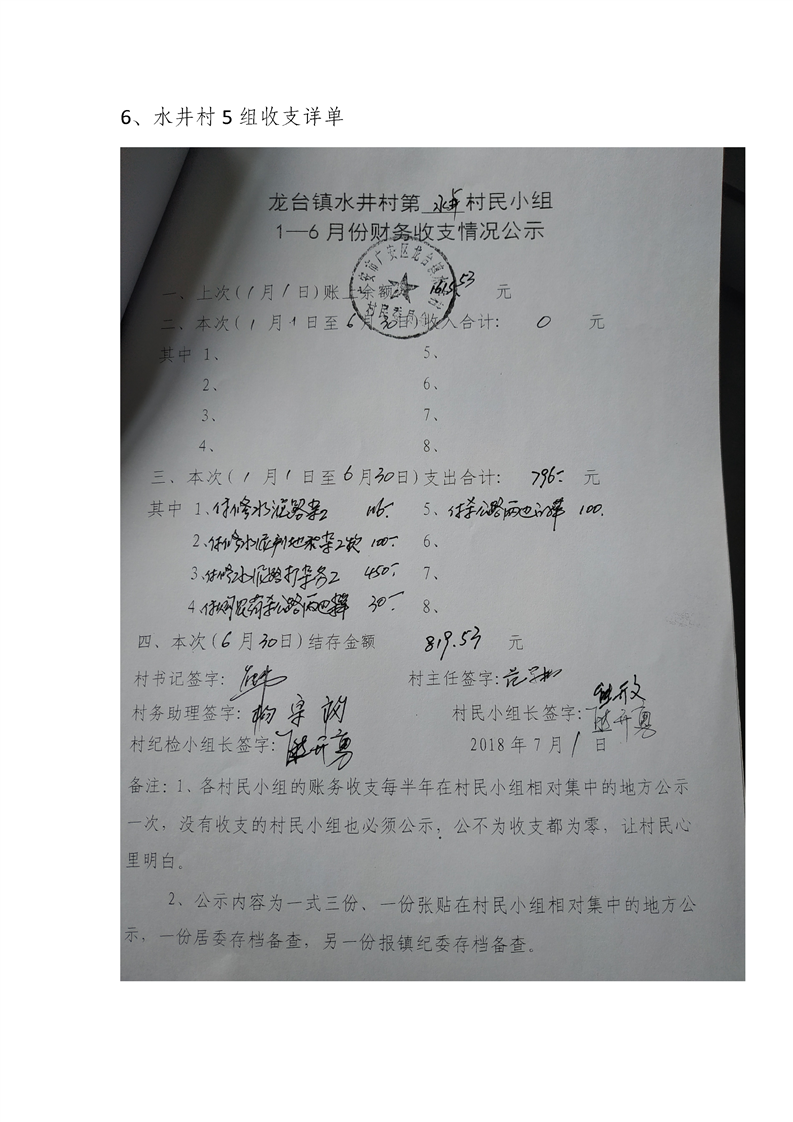 6、水井村 5 组收支详单
龙台镇水井村第 水井 村民小组
1—6 月份财务收支情况公示
一、上次(1月1日)账上余额: 1615.53 元
二、本次(1月1日至6月30日)收入合计: 0 元
其中 1、 5、
2、 6、
3、 7、
4、 8、
三、本次(1月1日至6月30日)支出合计: 796- 元
其中 1、付修水泥路杂工 116- 5、付杀公路两边的草 100.
2、付修水泥 地 杂工款 100-
6、
3、付修水泥路打杂务工 450- 7、
4、付 杀公路两边草 30- 8、
四、本次(6月30日)结存金额 819.53 元
村书记签字: 村主任签字:
村务助理签字:杨宗 村民小组长签字: 开文
村纪检小组长签字: 开勇 开勇
2018 年 7 月 1 日
备注:1、各村民小组的账务收支每半年在村民小组相对集中的地方公示
一次,没有收支的村民小组也必须公示,公不为收支都为零,让村民心
里明白。
2、公示内容为一式三份、一份张贴在村民小组相对集中的地方公
示,一份居委存档备查,另一份报镇纪委存档备查。